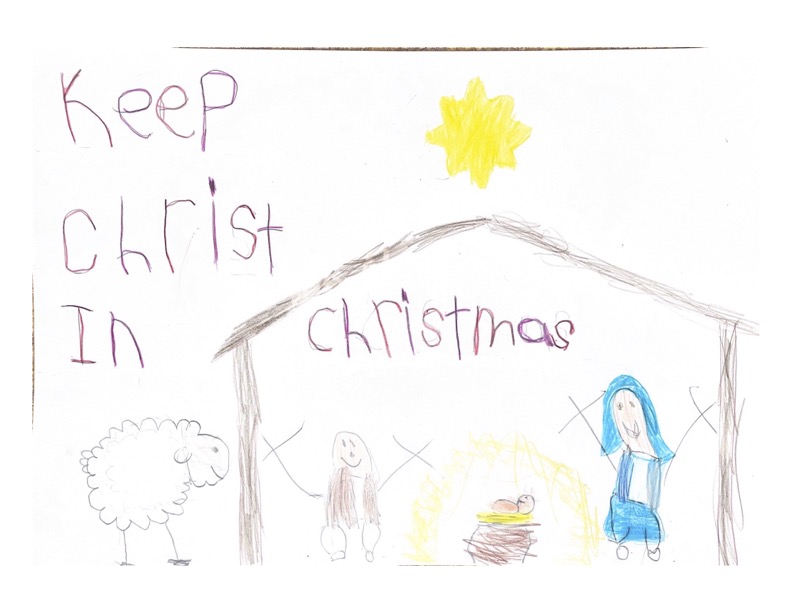 Keep
Christ
In christmas